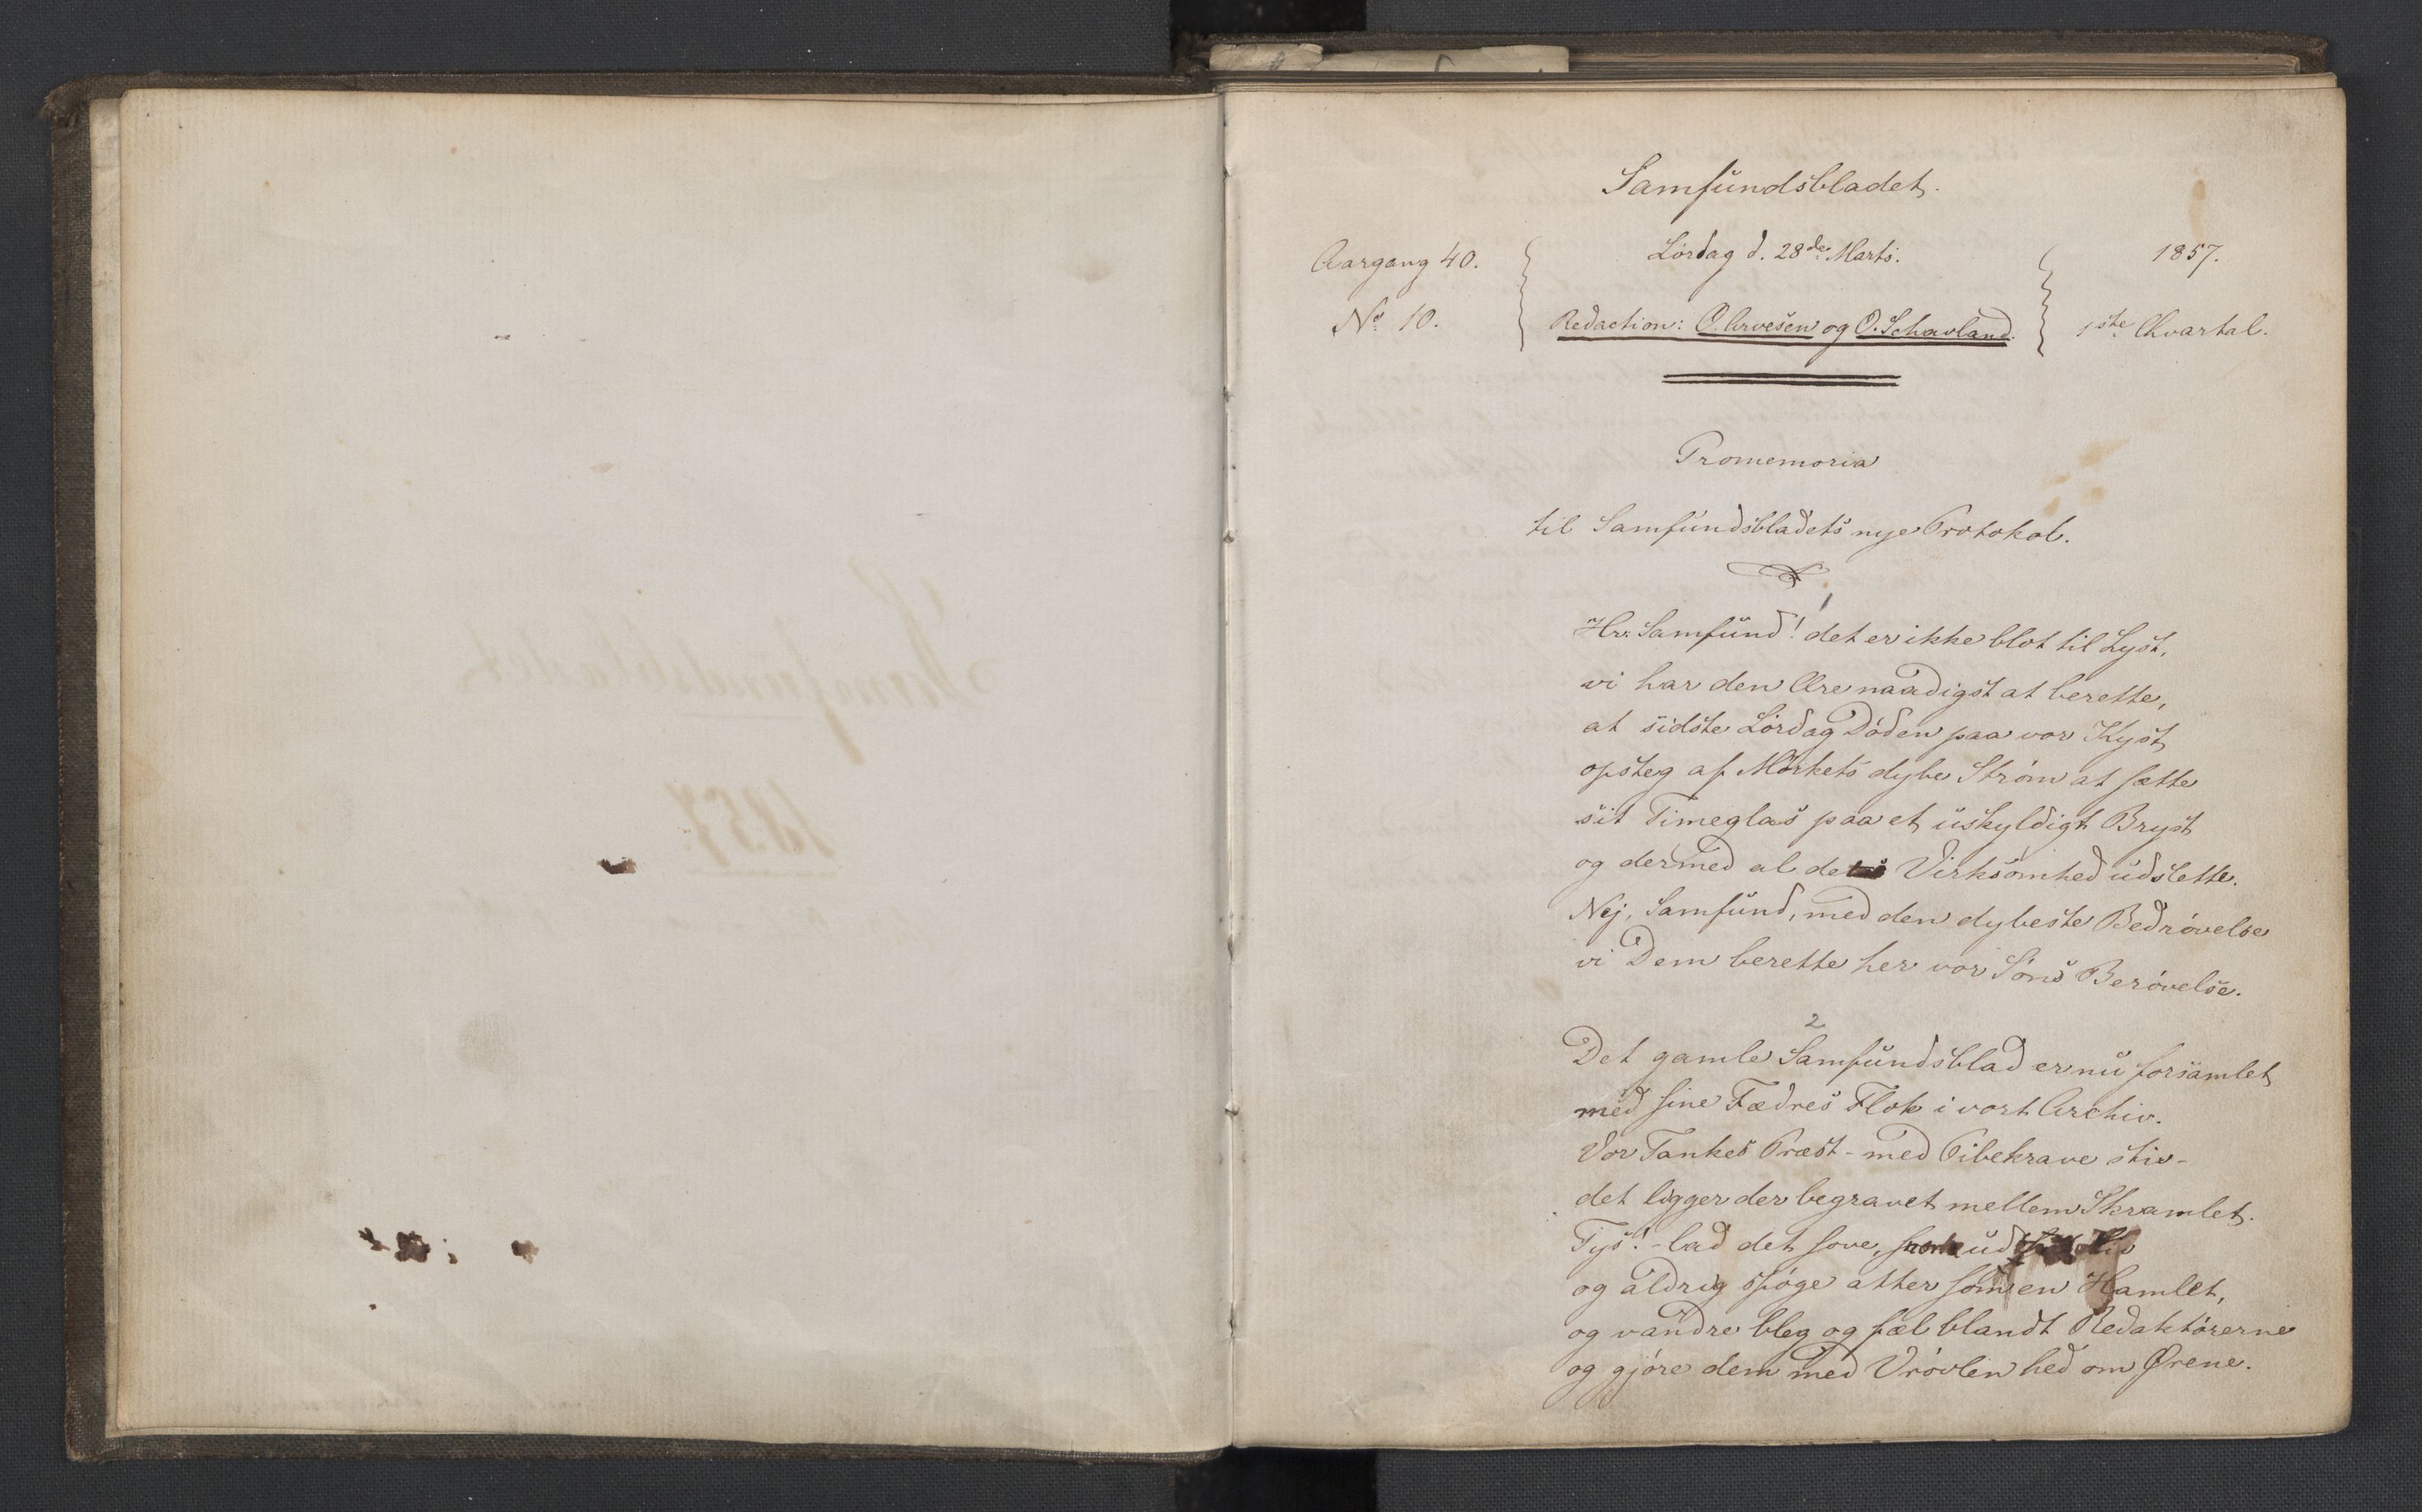 Samfundsbladet.
Aargang 40.
Lørdag d. 28de Marts.
1857.
No 10.
Redaction: O. Arvesen og O. Schavland.
1ste Qvartal.
Promemoria
til Samfundsbladets nye Protokol.
1
Hr. Samfund! det er ikke blot til Lyst,
vi har den Ære naadigst at berette,
at sidste Lørdag Døden paa vor Kyst
opsteg af Mørkets dybe Strøm at sætte
sit Timeglas paa et uskyldigt Bryst
og dermed al dets Virksomhed udslette.
Nej, Samfund, med den dybeste Bedrøvelse
vi Dem berette her vor Søns Berøvelse.
2
Det gamle Samfundsblad er nu forsamlet
med sine Fædres Flok i vort Archiv.
Vor Tankes Præst - med Pibekrave stiv -
det ligger der begravet mellem Skramlet.
Tys! - lad det sove, snork ud
og aldrig spøge atter som en Hamlet,
og vandre bleg og fæl blandt Redaktørerne
og gjøre dem med Vrøvlen hed om Ørene.
Samfundsbladet
1857.